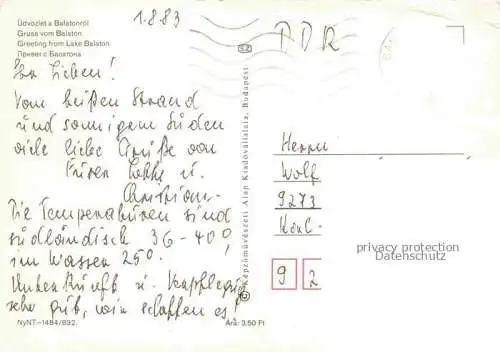 Üdvözlet a Balatonról
Gruss vom Balaton
Greeting from Lake Balaton
Привет с Балатона
1.8.83
DDR
Ihr Lieben!
Vom heißen Strand
und sonnigem Süden
viele liebe Grüße von
Euren u.
Christian.
Die Temperaturen sind
südländisch 36-40°!
im Wasser 25°.
Unterkunft u. Verpflegung
sehr gut, wir schaffen es!
NyNT.-1484/832.
Ára: 3,50 Ft
© Képzőművészeti Alap Kiadóvállalata, Budapest
Herrn
Wolf
9273
privacy protection
Datenschutz
9 2